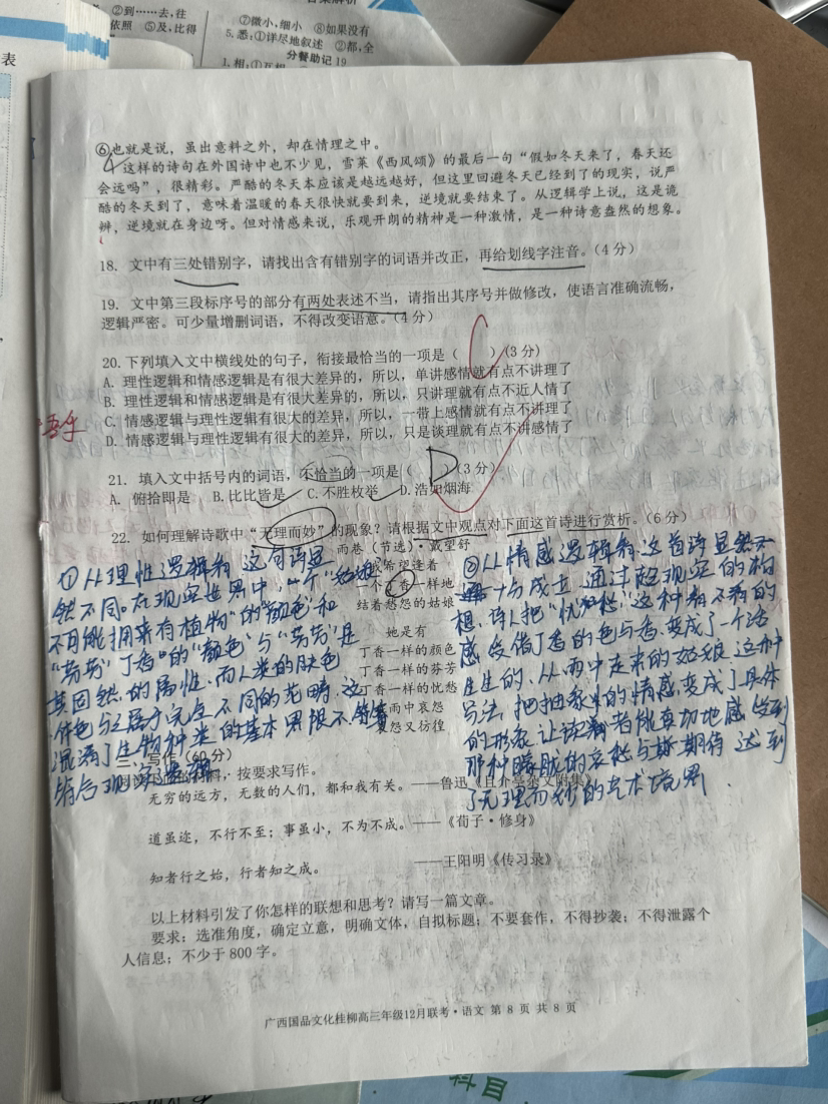 ②到……去,往
依照 ⑤及,比得
②微小,细小 ⑧如果没有
5.悉:①详尽地叙述 ②都,全
分餐助记19
表
⑥也就是说,虽出意料之外,却在情理之中。
这样的诗句在外国诗中也不少见,雪莱《西风颂》的最后一句“假如冬天来了,春天还
会远吗”,很精彩。严酷的冬天本应该是越远越好,但这里回避冬天已经到了的现实,说严
酷的冬天到了,意味着温暖的春天很快就要到来,逆境就要结束了。从逻辑学上说,这是诡
辨,逆境就在身边呀。但对情感来说,乐观开朗的精神是一种激情,是一种诗意盎然的想象。
18. 文中有三处错别字,请找出含有错别字的词语并改正,再给划线字注音。(4分)
19. 文中第三段标序号的部分有两处表述不当,请指出其序号并做修改,使语言准确流畅,
逻辑严密。可少量增删词语,不得改变语意。(4分)
20.下列填入文中横线处的句子,衔接最恰当的一项是( C )(3分)
A. 理性逻辑和情感逻辑是有很大差异的,所以,单讲感情就有点不讲理了
B. 理性逻辑和情感逻辑是有很大差异的,所以,只讲理就有点不近人情了
C. 情感逻辑与理性逻辑有很大的差异,所以,一带上感情就有点不讲理了
D. 情感逻辑与理性逻辑有很大的差异,所以,只是谈理就有点不讲感情了
21. 填入文中括号内的词语,不恰当的一项是( D )(3分)
A. 俯拾即是 B.比比皆是 C.不胜枚举 D.浩如烟海
22. 如何理解诗歌中“无理而妙”的现象?请根据文中观点对下面这首诗进行赏析。(6分)
雨巷(节选)·戴望舒
我希望逢着
一个丁香一样地
结着愁怨的姑娘
她是有
丁香一样的颜色
丁香一样的芬芳
丁香一样的忧愁
雨中哀怨
哀怨又彷徨
①从理性逻辑看,这句诗显
然不同。在现实世界中,一个“姑娘”
不可能拥有植物“的“颜色”和
“芬芳”丁香”的“颜色”与“芬芳”是
其固然的属性,而人类的肤色
体色与之属于完全不同的范畴,这
混淆了生物种类的基本界限不
符合现实逻辑
②从情感逻辑看,这首诗显然
十分成立,通过超现实的构
想,诗人把“忧愁”这种看不见的
感受借丁香的色与香,变成了一个活
生生的,从雨中走来的姑娘,这种
写法,把抽象的情感,变成了具体
的形象,让读者能真切地感受到
那种朦胧的哀愁与期待,达到
了无理而妙的艺术境界.
三、写作(60分)
料,按要求写作。
无穷的远方,无数的人们,都和我有关。——鲁迅《且介亭杂文附集》
道虽迩,不行不至;事虽小,不为不成。——《荀子·修身》
知者行之始,行者知之成。——王阳明《传习录》
以上材料引发了你怎样的联想和思考?请写一篇文章。
要求:选准角度,确定立意,明确文体,自拟标题;不要套作,不得抄袭;不得泄露个
人信息;不少于800字。
广西国品文化桂柳高三年级12月联考·语文 第 8 页 共 8 页